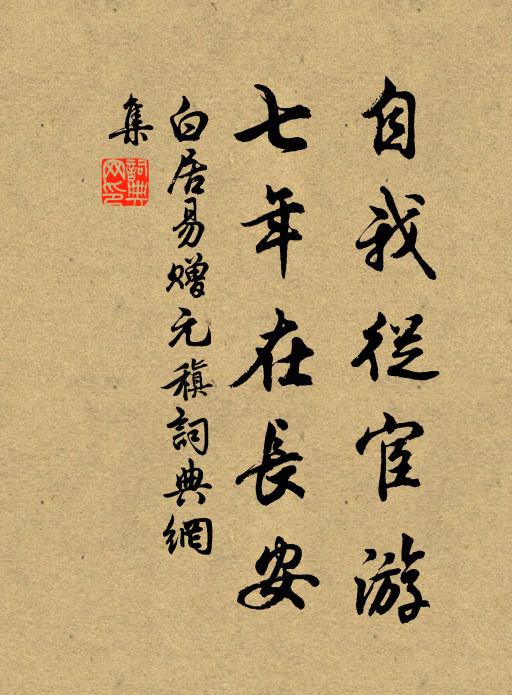 自我從宦游
七年在長安
白居易贈元稹詞典網
集
詞典网印